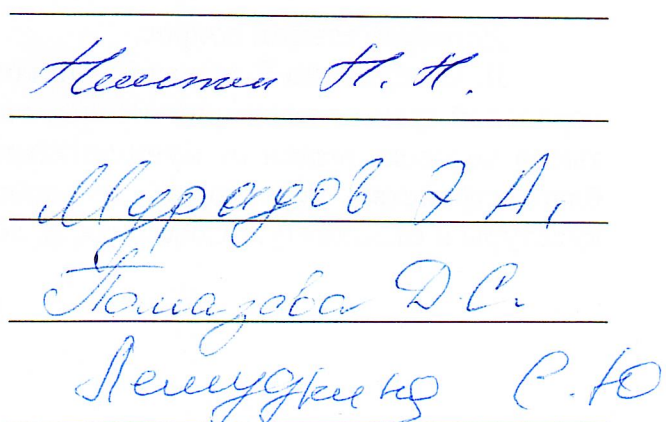 Никитин Н. Н.
Мурадов Э А.
Помазова Д.С.
Лемудкина С.Ю